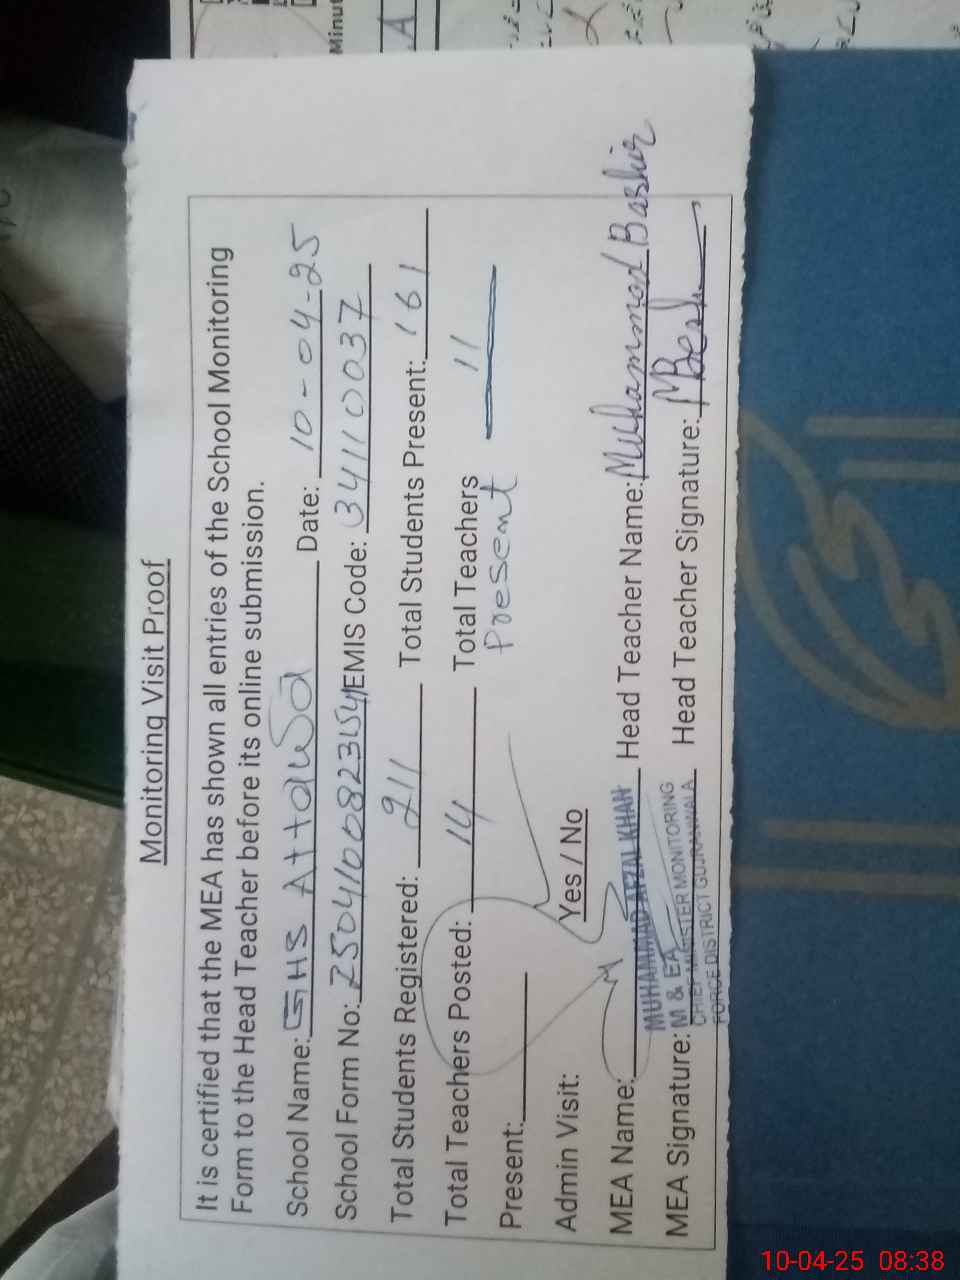 Monitoring Visit Proof
It is certified that the MEA has shown all entries of the School Monitoring
Form to the Head Teacher before its online submission.
School Name: GHS Attawa Date: 10-04-25
School Form No: EMIS Code: 34110037
Total Students Registered: 211 Total Students Present: 161
Total Teachers Posted: 14 Total Teachers 11
Present: Present
Admin Visit: Yes / No
MEA Name: MUHAMMAD AFZAL KHAN Head Teacher Name: Muhammad Bashir
MEA Signature: M & EA Head Teacher Signature: MBash
CHIEF MINISTER MONITORING
FORCE DISTRICT GUJRANWALA
Minut
A
10-04-25 08:38